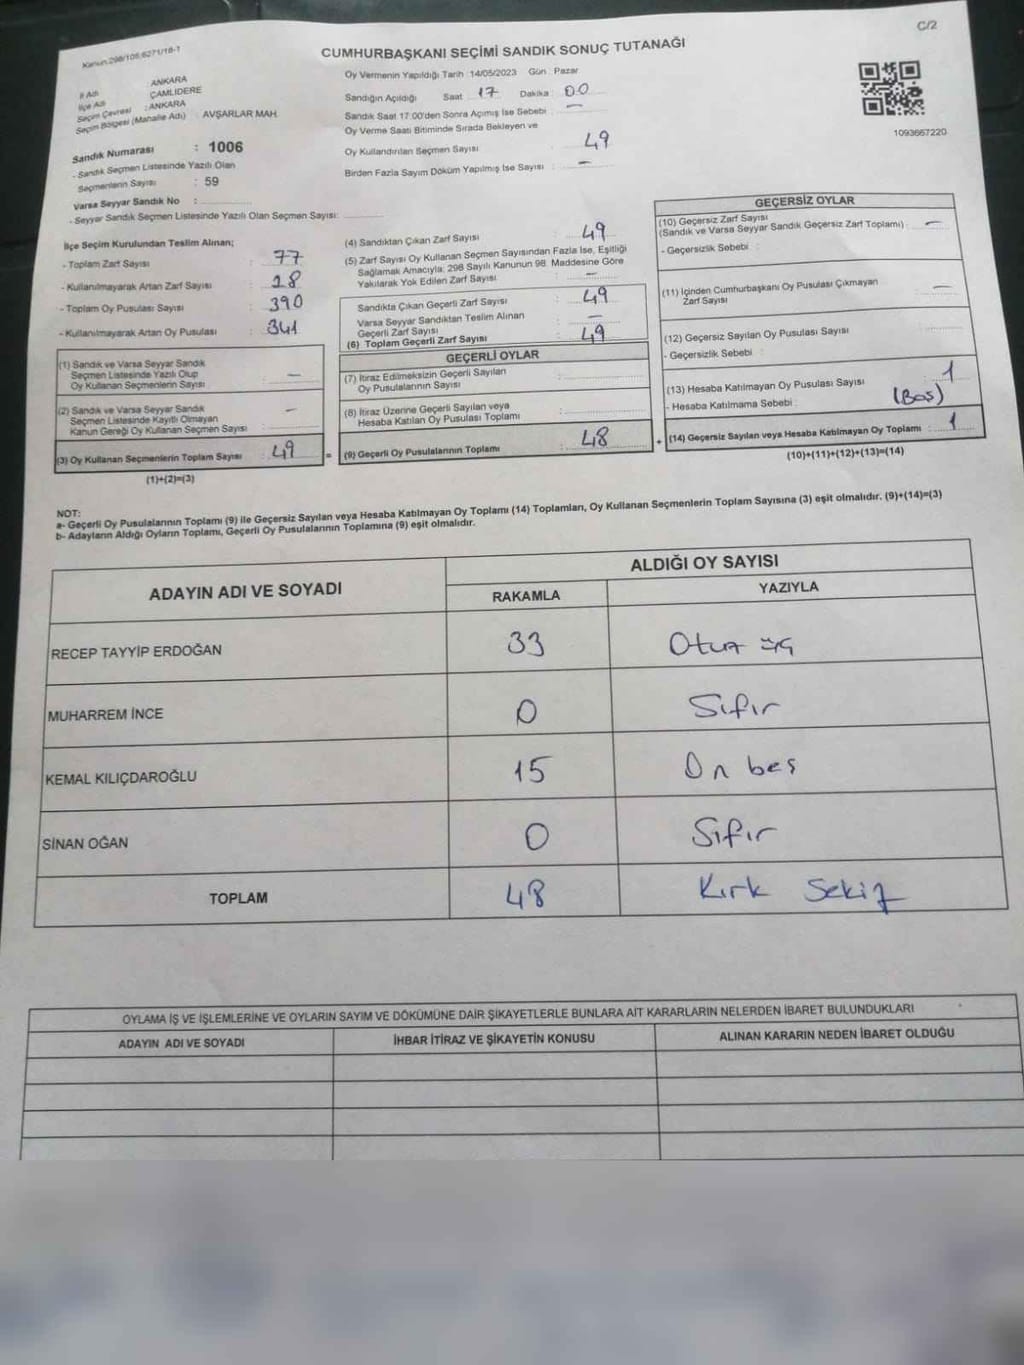 Kanun.298/105,6271/18-1
C/2
CUMHURBAŞKANI SEÇİMİ SANDIK SONUÇ TUTANAĞI
İl Adı : ANKARA
İlçe Adı : ÇAMLIDERE
Seçim Çevresi : ANKARA
Seçim Bölgesi (Mahalle Adı) : AVŞARLAR MAH.
Sandık Numarası : 1006
- Sandık Seçmen Listesinde Yazılı Olan
Seçmenlerin Sayısı : 59
Varsa Seyyar Sandık No :
- Seyyar Sandık Seçmen Listesinde Yazılı Olan Seçmen Sayısı:
Oy Vermenin Yapıldığı Tarih :14/05/2023 Gün : Pazar
Sandığın Açıldığı Saat 17 Dakika : 00
Sandık Saat 17:00'den Sonra Açımış İse Sebebi : —
Oy Verme Saati Bitiminde Sırada Bekleyen ve
Oy Kullandırılan Seçmen Sayısı : 49
Birden Fazla Sayım Döküm Yapılmış İse Sayısı : —
1093667220
İlçe Seçim Kurulundan Teslim Alınan;
- Toplam Zarf Sayısı : 77
- Kullanılmayarak Artan Zarf Sayısı : 28
- Toplam Oy Pusulası Sayısı : 390
- Kullanılmayarak Artan Oy Pusulası : 341
(1) Sandık ve Varsa Seyyar Sandık
Seçmen Listesinde Yazılı Olup
Oy Kullanan Seçmenlerin Sayısı : —
(2) Sandık ve Varsa Seyyar Sandık
Seçmen Listesinde Kayıtlı Olmayan
Kanun Gereği Oy Kullanan Seçmen Sayısı : —
(3) Oy Kullanan Seçmenlerin Toplam Sayısı : 49
(1)+(2)=(3)
(4) Sandıktan Çıkan Zarf Sayısı : 49
(5) Zarf Sayısı Oy Kullanan Seçmen Sayısından Fazla İse, Eşitliği
Sağlamak Amacıyla; 298 Sayılı Kanunun 98. Maddesine Göre
Yakılarak Yok Edilen Zarf Sayısı : —
Sandıkta Çıkan Geçerli Zarf Sayısı : 49
Varsa Seyyar Sandıktan Teslim Alınan
Geçerli Zarf Sayısı : —
(6) Toplam Geçerli Zarf Sayısı : 49
GEÇERLİ OYLAR
(7) İtiraz Edilmeksizin Geçerli Sayılan
Oy Pusulalarının Sayısı :
(8) İtiraz Üzerine Geçerli Sayılan veya
Hesaba Katılan Oy Pusulası Toplamı :
(9) Geçerli Oy Pusulalarının Toplamı : 48
GEÇERSİZ OYLAR
(10) Geçersiz Zarf Sayısı
(Sandık ve Varsa Seyyar Sandık Geçersiz Zarf Toplamı) : —
- Geçersizlik Sebebi :
(11) İçinden Cumhurbaşkanı Oy Pusulası Çıkmayan
Zarf Sayısı : —
(12) Geçersiz Sayılan Oy Pusulası Sayısı :
- Geçersizlik Sebebi :
(13) Hesaba Katılmayan Oy Pusulası Sayısı : 1
- Hesaba Katılmama Sebebi : (Boş)
+ (14) Geçersiz Sayılan veya Hesaba Katılmayan Oy Toplamı : 1
(10)+(11)+(12)+(13)=(14)
NOT:
a- Geçerli Oy Pusulalarının Toplamı (9) ile Geçersiz Sayılan veya Hesaba Katılmayan Oy Toplamı (14) Toplamları, Oy Kullanan Seçmenlerin Toplam Sayısına (3) eşit olmalıdır. (9)+(14)=(3)
b- Adayların Aldığı Oyların Toplamı, Geçerli Oy Pusulalarının Toplamına (9) eşit olmalıdır.
ADAYIN ADI VE SOYADI ALDIĞI OY SAYISI
RAKAMLA YAZIYLA
RECEP TAYYİP ERDOĞAN 33 Otuz üç
MUHARREM İNCE 0 Sıfır
KEMAL KILIÇDAROĞLU 15 On beş
SİNAN OĞAN 0 Sıfır
TOPLAM 48 Kırk Sekiz
OYLAMA İŞ VE İŞLEMLERİNE VE OYLARIN SAYIM VE DÖKÜMÜNE DAİR ŞİKAYETLERLE BUNLARA AİT KARARLARIN NELERDEN İBARET BULUNDUKLARI
ADAYIN ADI VE SOYADI İHBAR İTİRAZ VE ŞİKAYETİN KONUSU ALINAN KARARIN NEDEN İBARET OLDUĞU